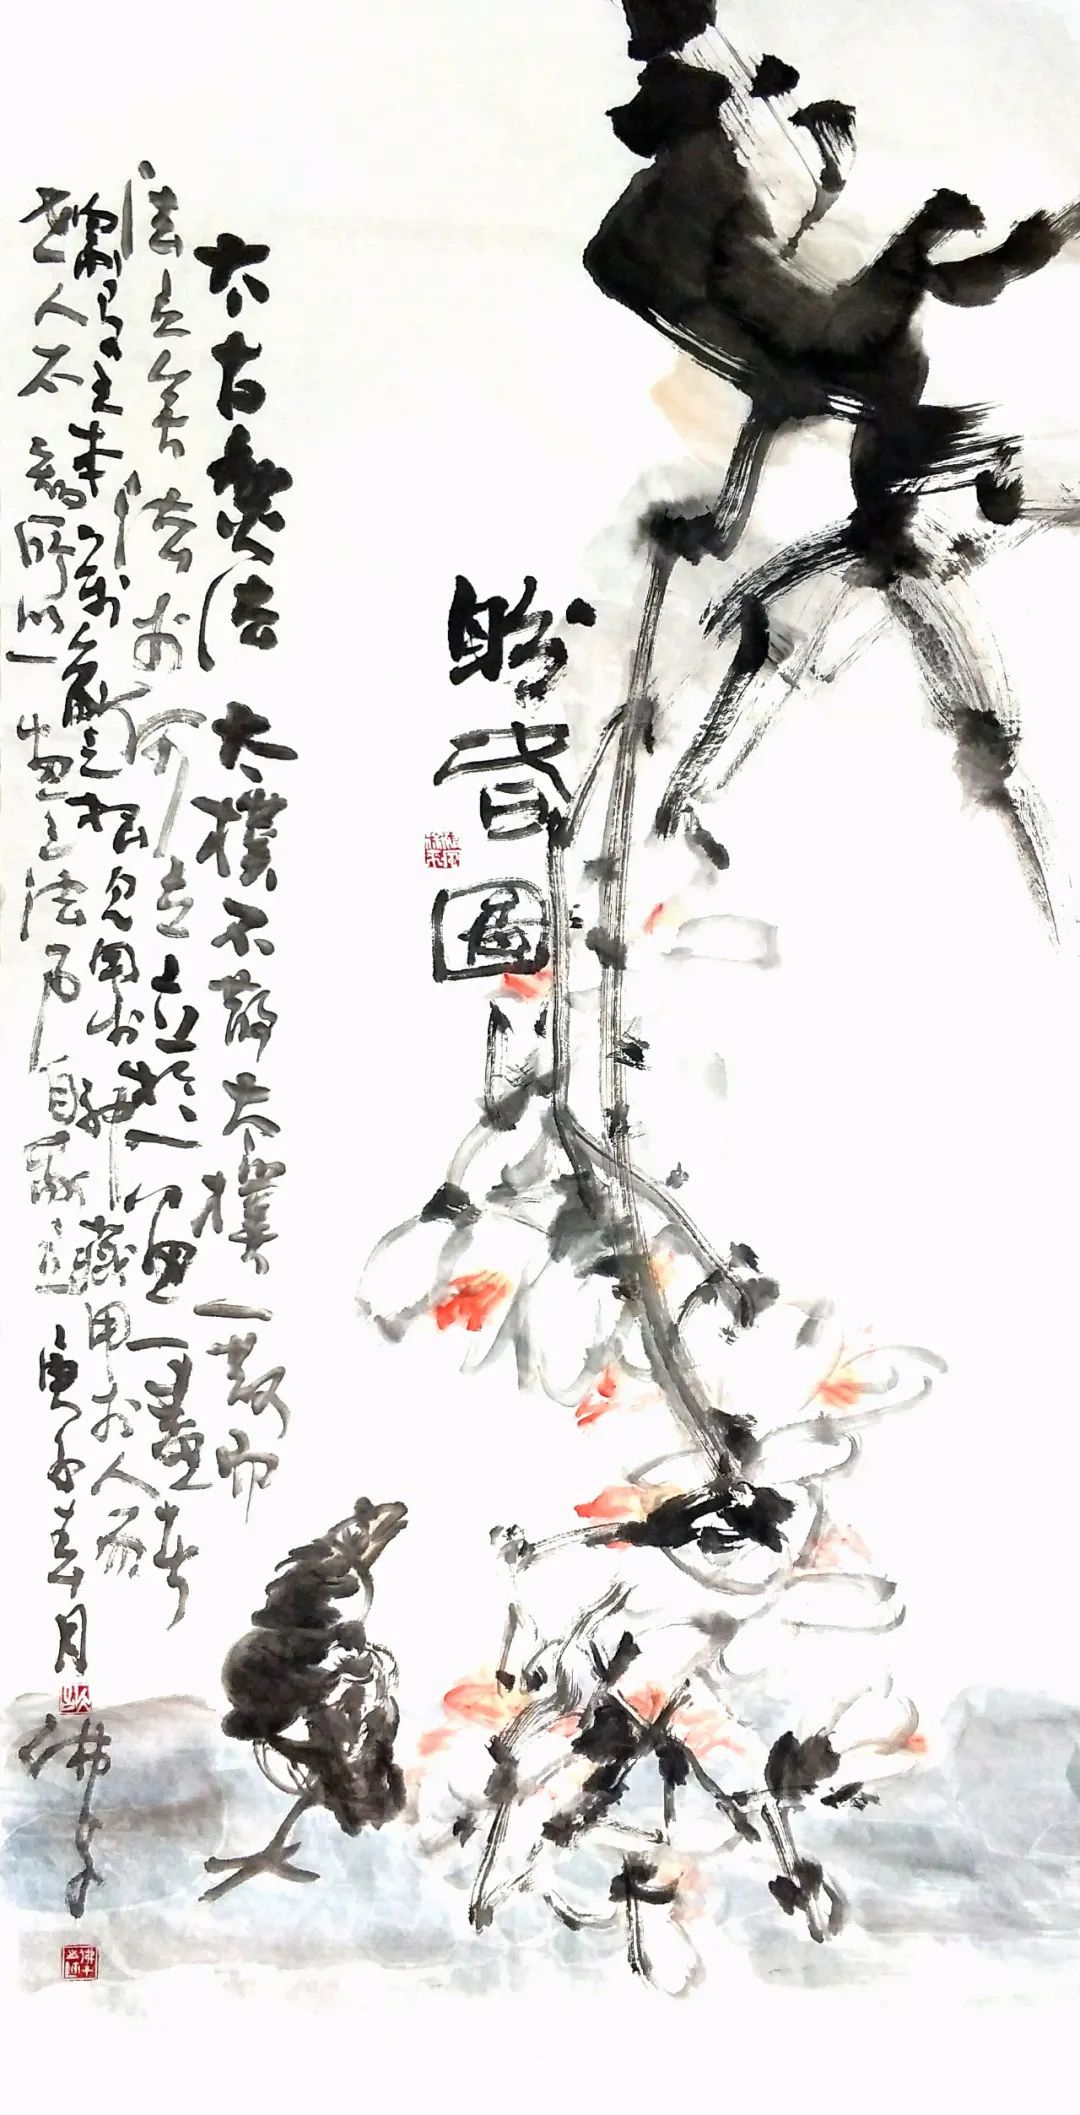 盼春圖
太古無法太樸不散太樸一散而
法立矣法於何立立於一畫一畫者
眾有之本萬象之根見用於神藏用於人而
世人不知所以一畫之法乃自我立 庚子春月
佛